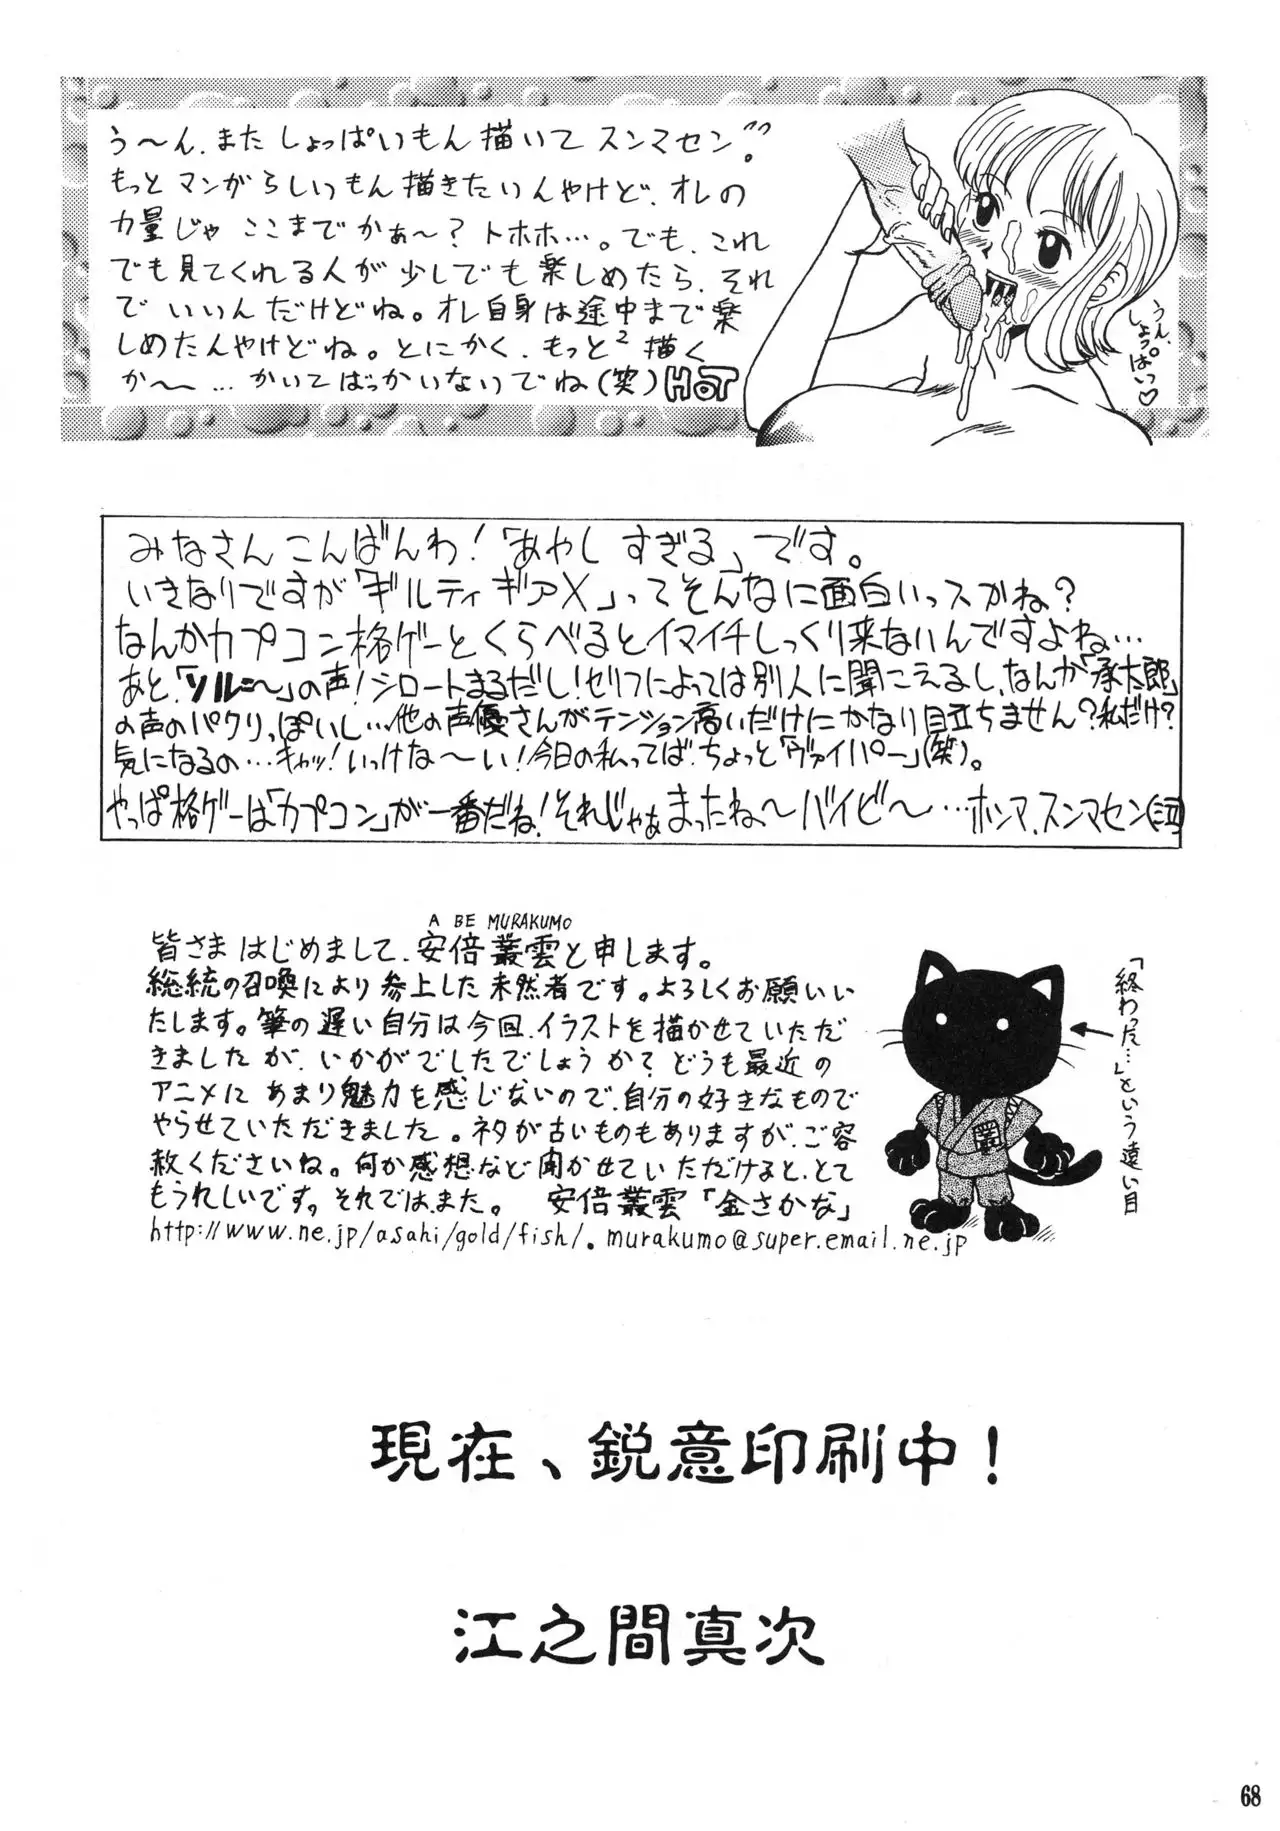 う〜ん、またしょっぱいもん描いてスンマセン。
もっとマンガらしいもん描きたいんやけど、オレの
力量じゃここまでかぁ〜？トホホ…。でも、これ
でも見てくれる人が少しでも楽しめたら、それ
でいいんだけどね。オレ自身は途中まで楽
しめたんやけどね。とにかく、もっと²描く
か〜…かいてばっかいないでね(笑)HOT
うん、
しょっぱいっ♡
みなさんこんばんわ！「あやしすぎる」です。
いきなりですが「ギルティギアX」ってそんなに面白いっスかね？
なんかカプコン格ゲーとくらべるとイマイチしっくり来ないんですよね…
あと、「ソル」の声！シロートまるだし！ゼリフによっては別人に聞こえるし、なんか「承太郎」
の声のパクリっぽいし…他の声優さんがテンション高いだけにかなり目立ちません？私だけ？
気になるの…キャッ！いっけな〜い！今日の私ってば、ちょっと「ヴァイパー」(笑)。
やっぱ格ゲーは「カプコン」が一番だね！それじゃぁまったね〜バイビ〜…ホンマ、スンマセン(泣)
A BE MURAKUMO
皆さまはじめまして、安倍叢雲と申します。
総統の召喚により参上した未然者です。よろしくお願いい
たします。筆の遅い自分は今回、イラストを描かせていただ
きましたが、いかがでしたでしょうか？どうも最近の
アニメにあまり魅力を感じないので、自分の好きなもので
やらせていただきました。ネタが古いものもありますが、ご容
赦くださいね。何か感想など聞かせていただけると、とて
もうれしいです。それでは、また。 安倍叢雲「金さかな」
http://www.ne.jp/asahi/gold/fish/. murakumo@super.email.ne.jp
「終わった…」という遠い目
現在、鋭意印刷中！
江之間真次
68